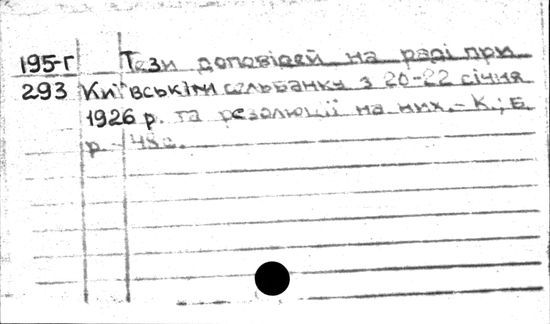 195-г Тези доповідей на раді при
293 Київськім сельбанку з 20-22 січня
1926 р. та резолюції на них. – К.; Б.
р. 48с.